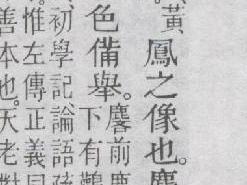 黃、鳳之像也。
色備舉。麐前鹿
下有
初學記、論語疏
惟左傳正義曰
善本也。大老對